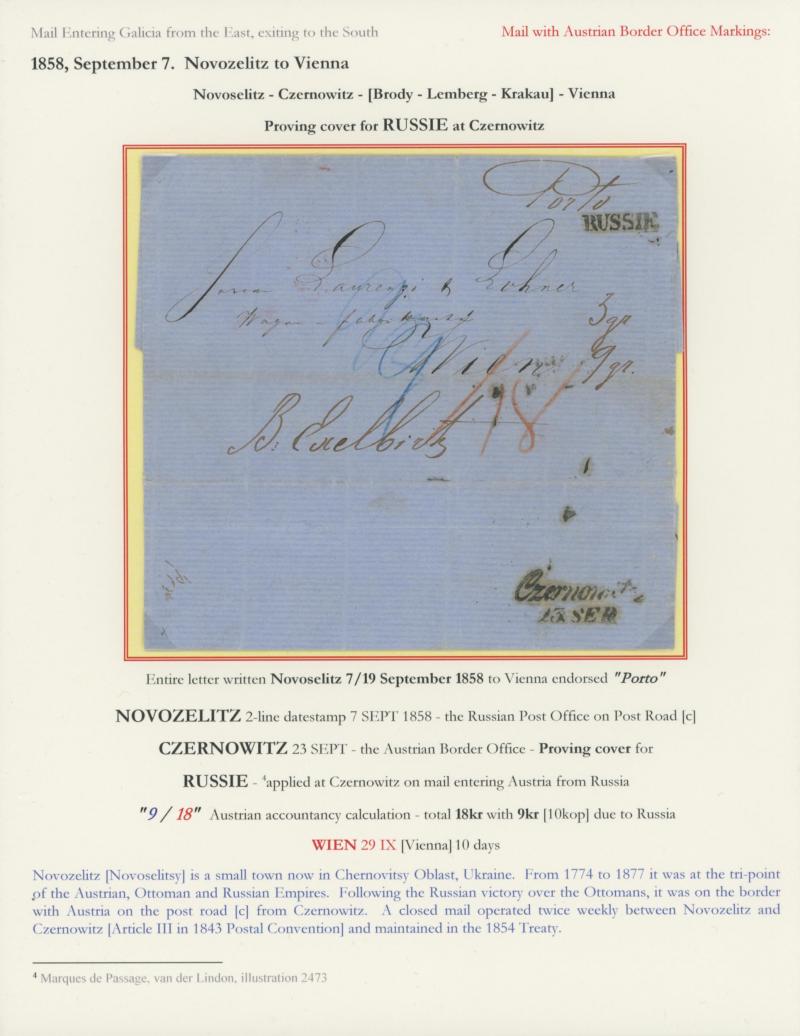 Mail Entering Galicia from the East, exiting to the South
Mail with Austrian Border Office Markings:
1858, September 7. Novozelitz to Vienna
Novoselitz - Czernowitz - [Brody - Lemberg - Krakau] - Vienna
Proving cover for RUSSIE at Czernowitz
Porto
RUSSIE
Laurenzi & Lohner
3gr
Wien 9gr.
/18
B:
Czernowitz
SEP
Entire letter written Novoselitz 7/19 September 1858 to Vienna endorsed "Porto"
NOVOZELITZ 2-line datestamp 7 SEPT 1858 - the Russian Post Office on Post Road [c]
CZERNOWITZ 23 SEPT - the Austrian Border Office - Proving cover for
RUSSIE - ⁴applied at Czernowitz on mail entering Austria from Russia
"9 / 18" Austrian accountancy calculation - total 18kr with 9kr [10kop] due to Russia
WIEN 29 IX [Vienna] 10 days
Novozelitz [Novoselitsy] is a small town now in Chernovitsy Oblast, Ukraine. From 1774 to 1877 it was at the tri-point
of the Austrian, Ottoman and Russian Empires. Following the Russian victory over the Ottomans, it was on the border
with Austria on the post road [c] from Czernowitz. A closed mail operated twice weekly between Novozelitz and
Czernowitz [Article III in 1843 Postal Convention] and maintained in the 1854 Treaty.
⁴ Marques de Passage, van der Lindon, illustration 2473